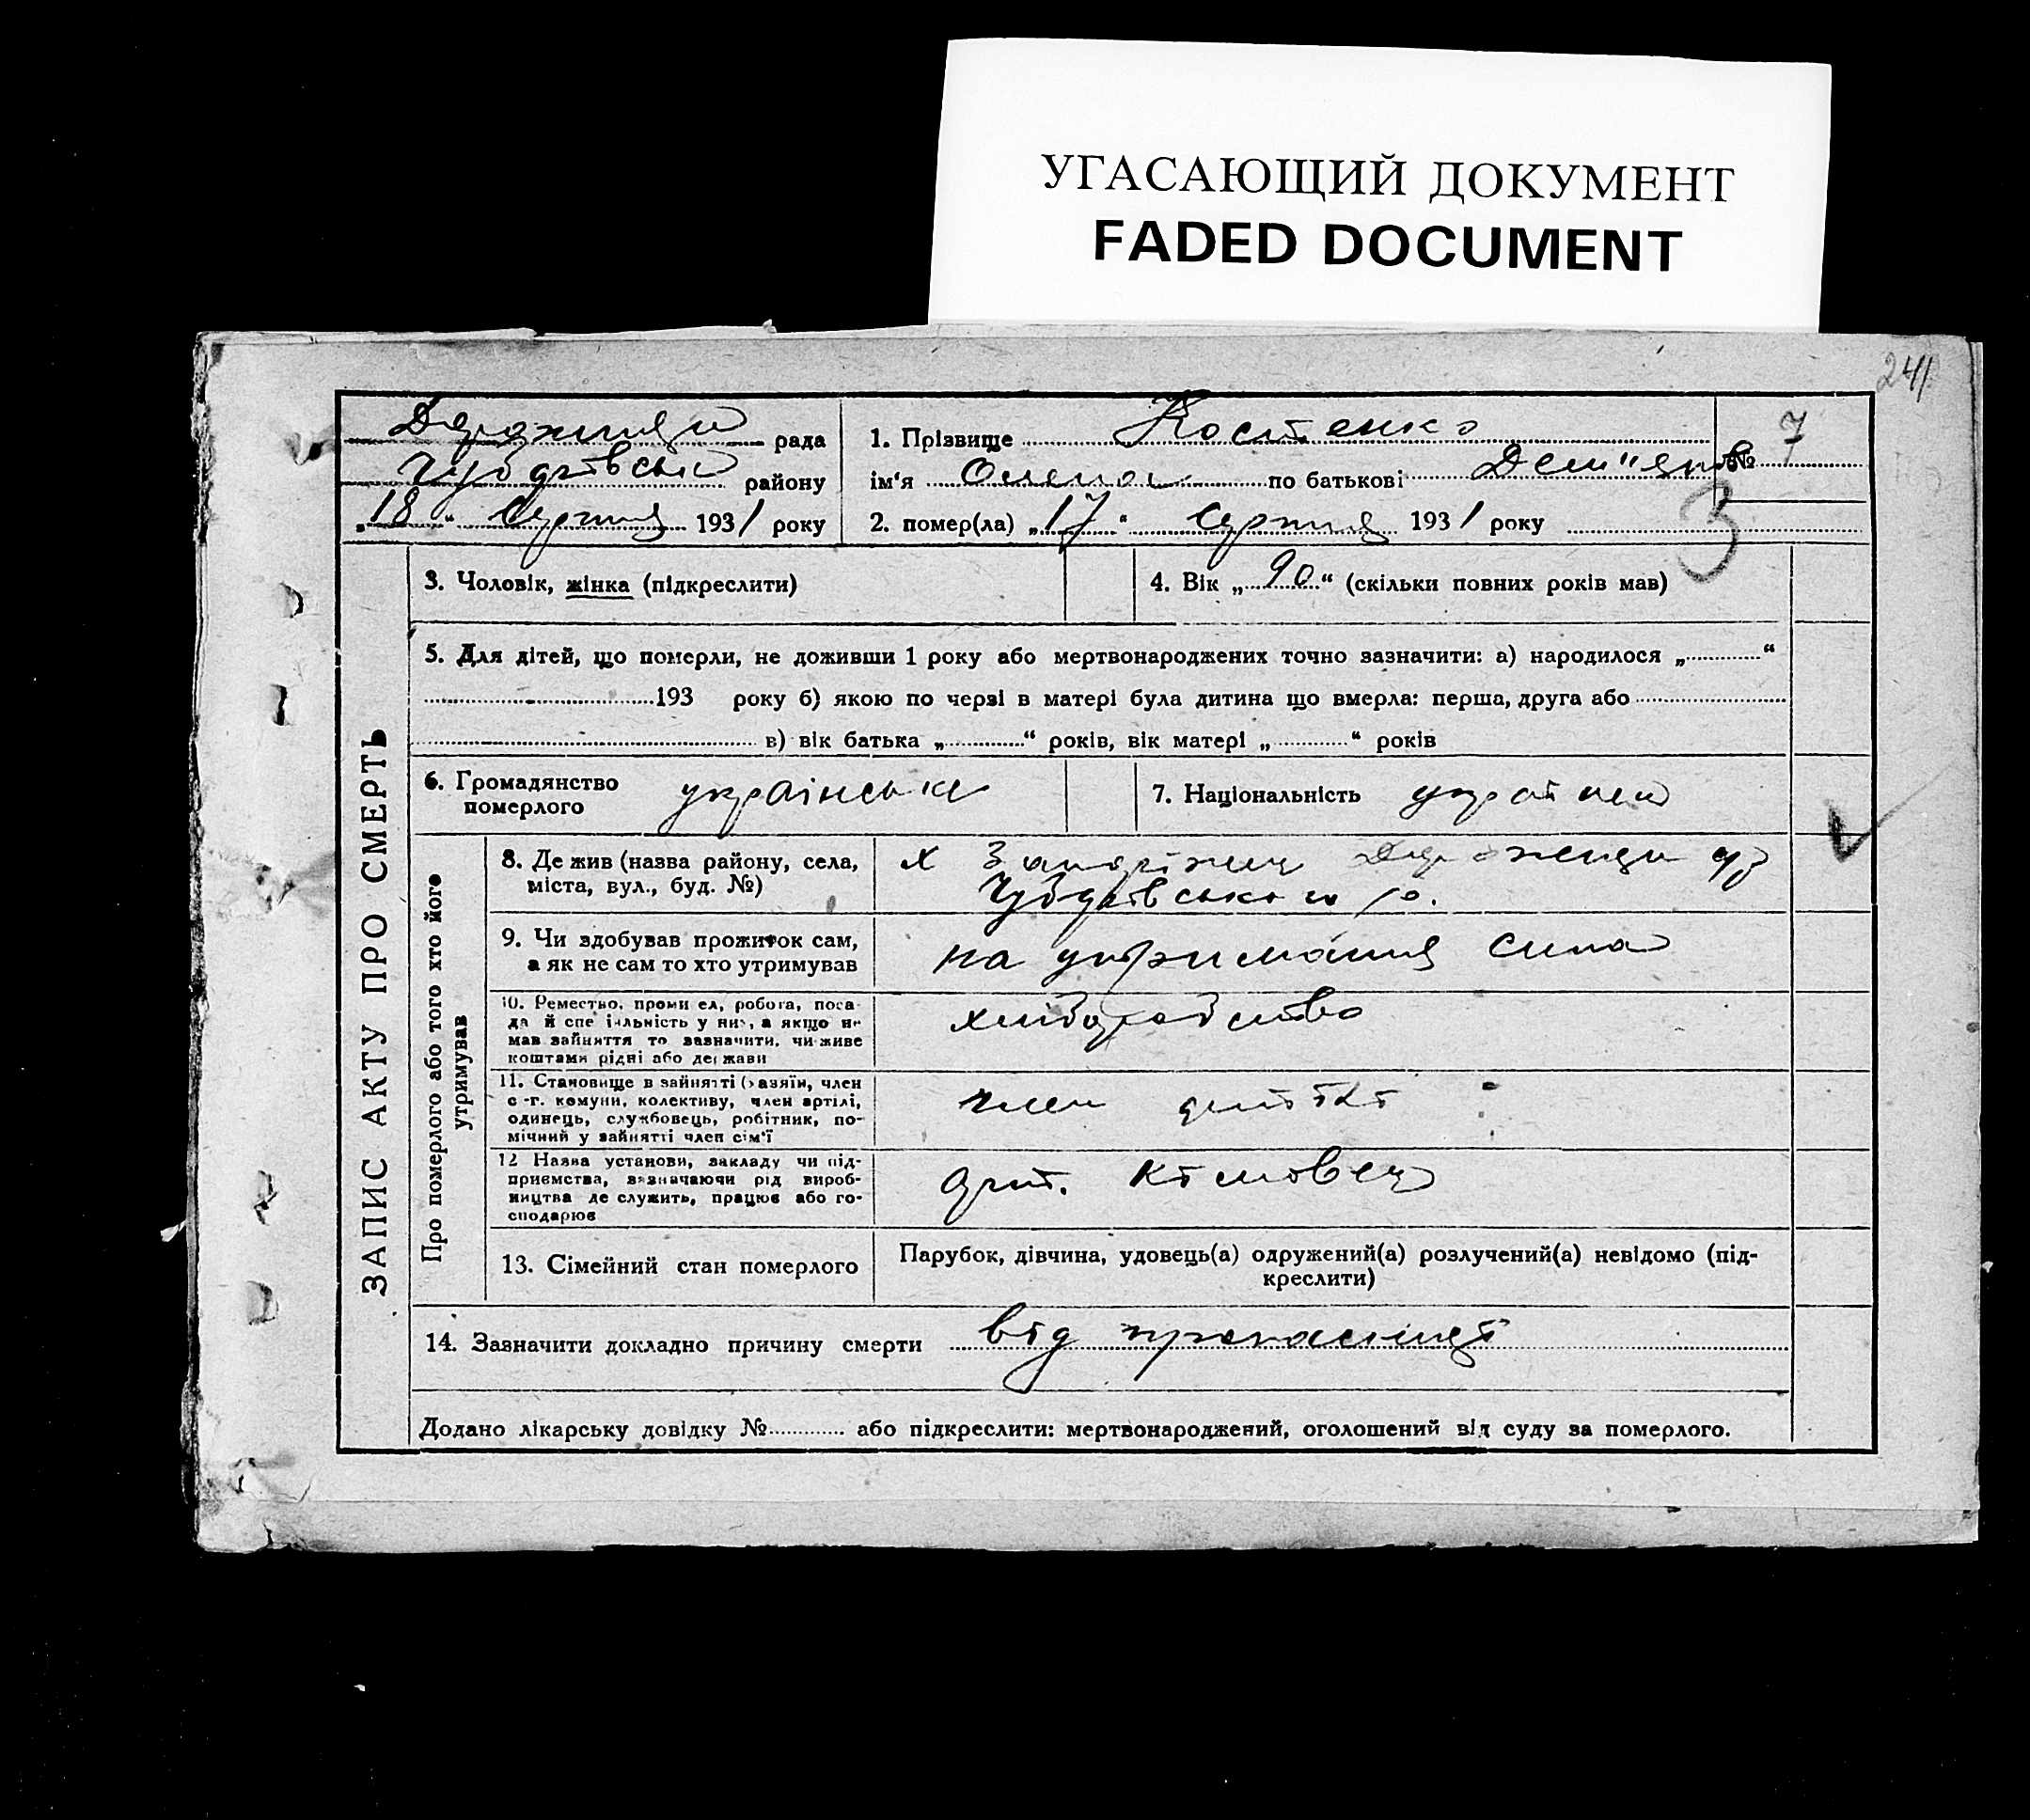 УГАСАЮЩИЙ ДОКУМЕНТ
FADED DOCUMENT
241
рада
Чубарівськ району
„18“ Серпня 1931 року
1. Прізвище Костенко
ім'я по батькові Дем"ян
№ 7
3
2. помер(ла) „17“ серпня 1931 року
ЗАПИС АКТУ ПРО СМЕРТЬ
3. Чоловік, жінка (підкреслити)
4. Вік „90“ (скільки повних років мав)
5. Для дітей, що померли, не доживши 1 року або мертвонароджених точно зазначити: а) народилося „ “
193 року б) якою по черзі в матері була дитина що вмерла: перша, друга або
в) вік батька „ “ років, вік матері „ “ років
6. Громадянство
померлого українське
7. Національність
Про померлого або того хто його
утримував
8. Де жив (назва району, села,
міста, вул., буд. №)
х
Чубарівського р.
9. Чи здобував прожиток сам,
а як не сам то хто утримував
на утримання сина
10. Ремество, промисел, робота, поса-
да й спеціяльність у них, а якщо не
мав зайняття то зазначити, чи живе
коштами рідні або держави
хліборобство
11. Становище в зайнятті (хазяїн, член
с.-г. комуни, колективу, член артілі,
одинець, службовець, робітник, по-
мічний у зайнятті член сім'ї
член
12 Назва установи, закладу чи під-
приємства, взазначаючи рід вироб-
ництва де служить, працює або го-
сподарює
арт.
13. Сімейний стан померлого
Парубок, дівчина, удовець(а) одружений(а) розлучений(а) невідомо (під-
креслити)
14. Зазначити докладно причину смерти від
Додано лікарську довідку № або підкреслити: мертвонароджений, оголошений від суду за померлого.